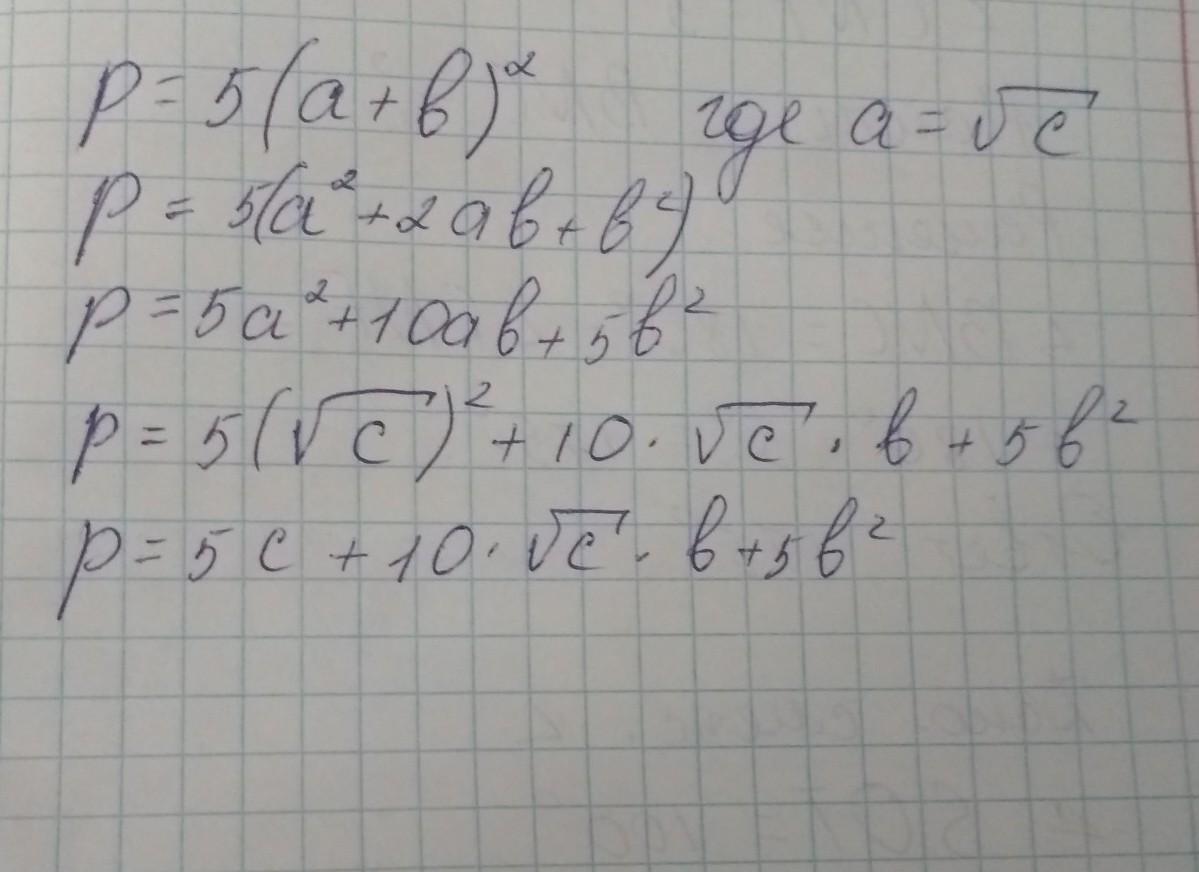 p = 5(a + b)² где a = √c
p = 5(a² + 2ab + b²)
p = 5a² + 10ab + 5b²
p = 5(√c)² + 10 · √c · b + 5b²
p = 5c + 10 · √c · b + 5b²